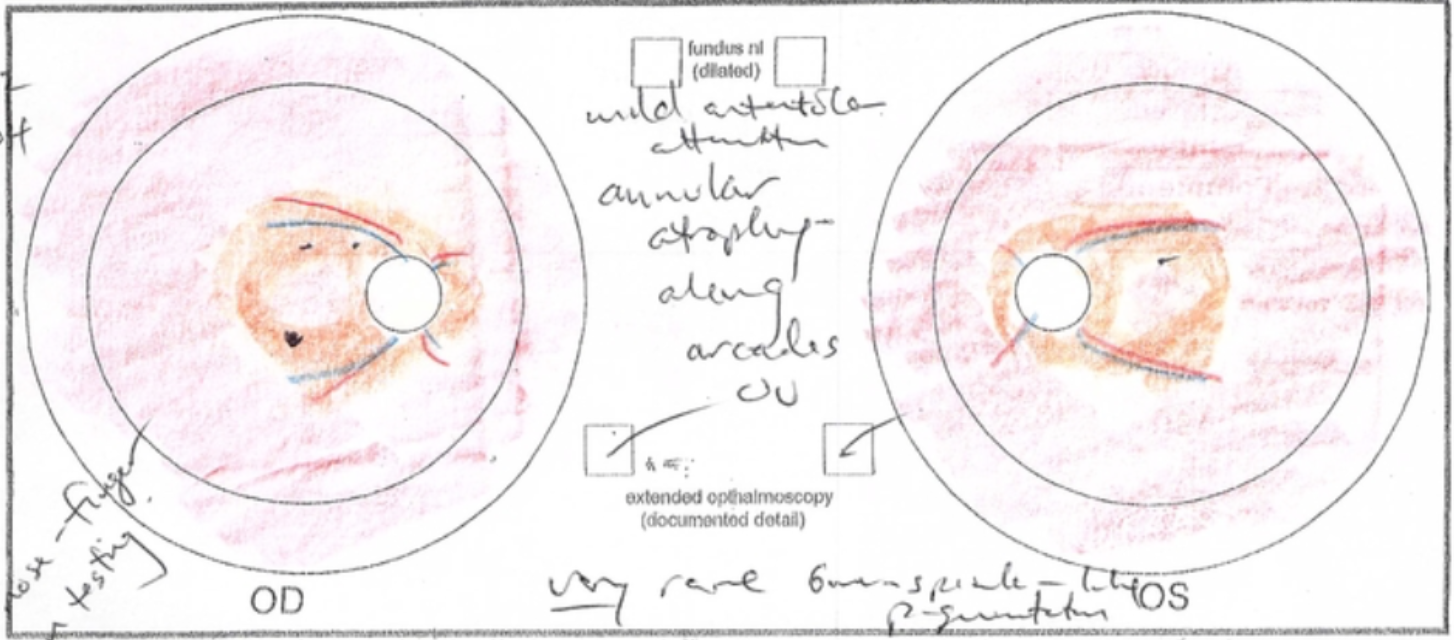 fundus nl
(dilated)
mild arteriolar
attenuation
annular
atrophy
along
arcades
OU
extended opthalmoscopy
(documented detail)
nose-finger
testing
OD
very rare bone spicule-like
pigmentation
OS